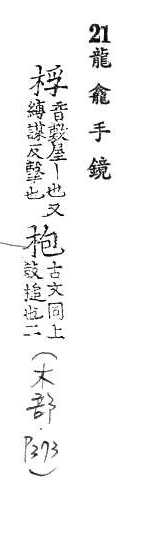 21 龍龕手鏡
桴音敷屋丨也又縛謀反擊也枹古文同上鼓搥也二(木部.P373)